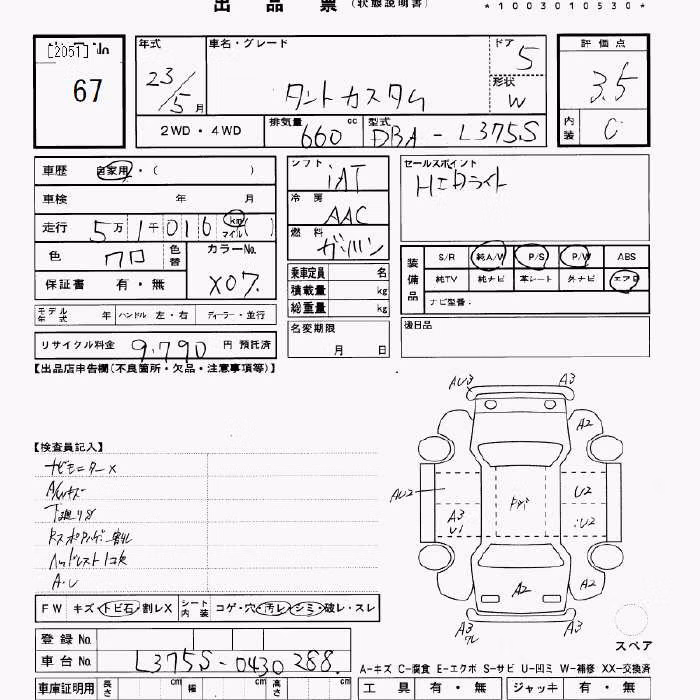 出品票(状態説明書)
*1003010530*
[2051]
67
年式
23/5月
車名・グレード
タントカスタム
ドア 5
形状 W
評価点
3.5
内装 C
2WD・4WD
排気量 660 cc
型式 DBA-L375S
車歴 自家用・( )
車検 年 月
走行 5万1千016 km マイル( )
色 クロ 色替
カラーNo. X07.
保証書 有・無
モデル年式 年 ハンドル 左・右 ディーラー・並行
リサイクル料金 9,790 円 預託済
シフト IAT
冷房 AAC
燃料 ガソリン
乗車定員 名
積載量 kg
総重量 kg
名変期限
月 日
セールスポイント
HIDライト
装備品
S/R 純A/W P/S P/W ABS
純TV 純ナビ 革シート 外ナビ エアB
ナビ型番:
後日品
【出品店申告欄(不良箇所・欠品・注意事項等)】
【検査員記入】
ナビモニターX
A/Wキズ
下廻りサビ
ヘッドレスト1コ欠
A・U
AU3 A3
A2
AU2
A3
U1
U2
U2
A2
A2
A3
A3
スペア
FW キズ・トビ石・割レX シート内装 コゲ・穴・汚レ・シミ・破レ・スレ
登録No.
車台No. L375S-0430288.
A-キズ C-腐食 E-エクボ S-サビ U-凹ミ W-補修 XX-交換済
車庫証明用 長さ cm 幅 cm 高さ cm
工具 有・無 ジャッキ 有・無